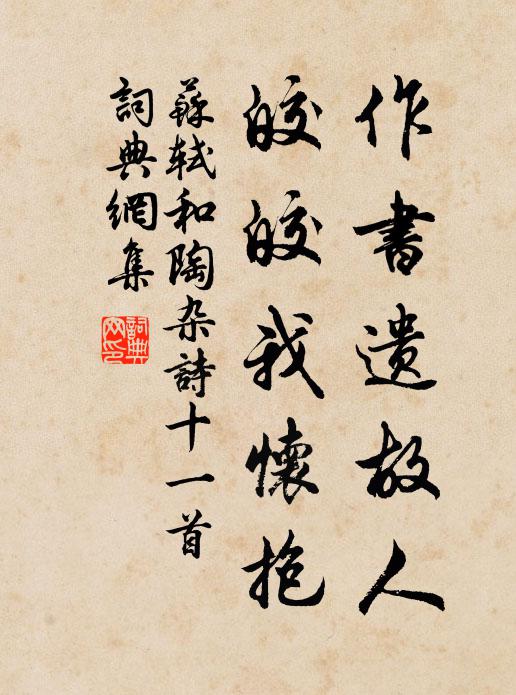 作書遺故人
皎皎我懷抱
蘇軾和陶杂詩十一首
詞典網集
詞典网印